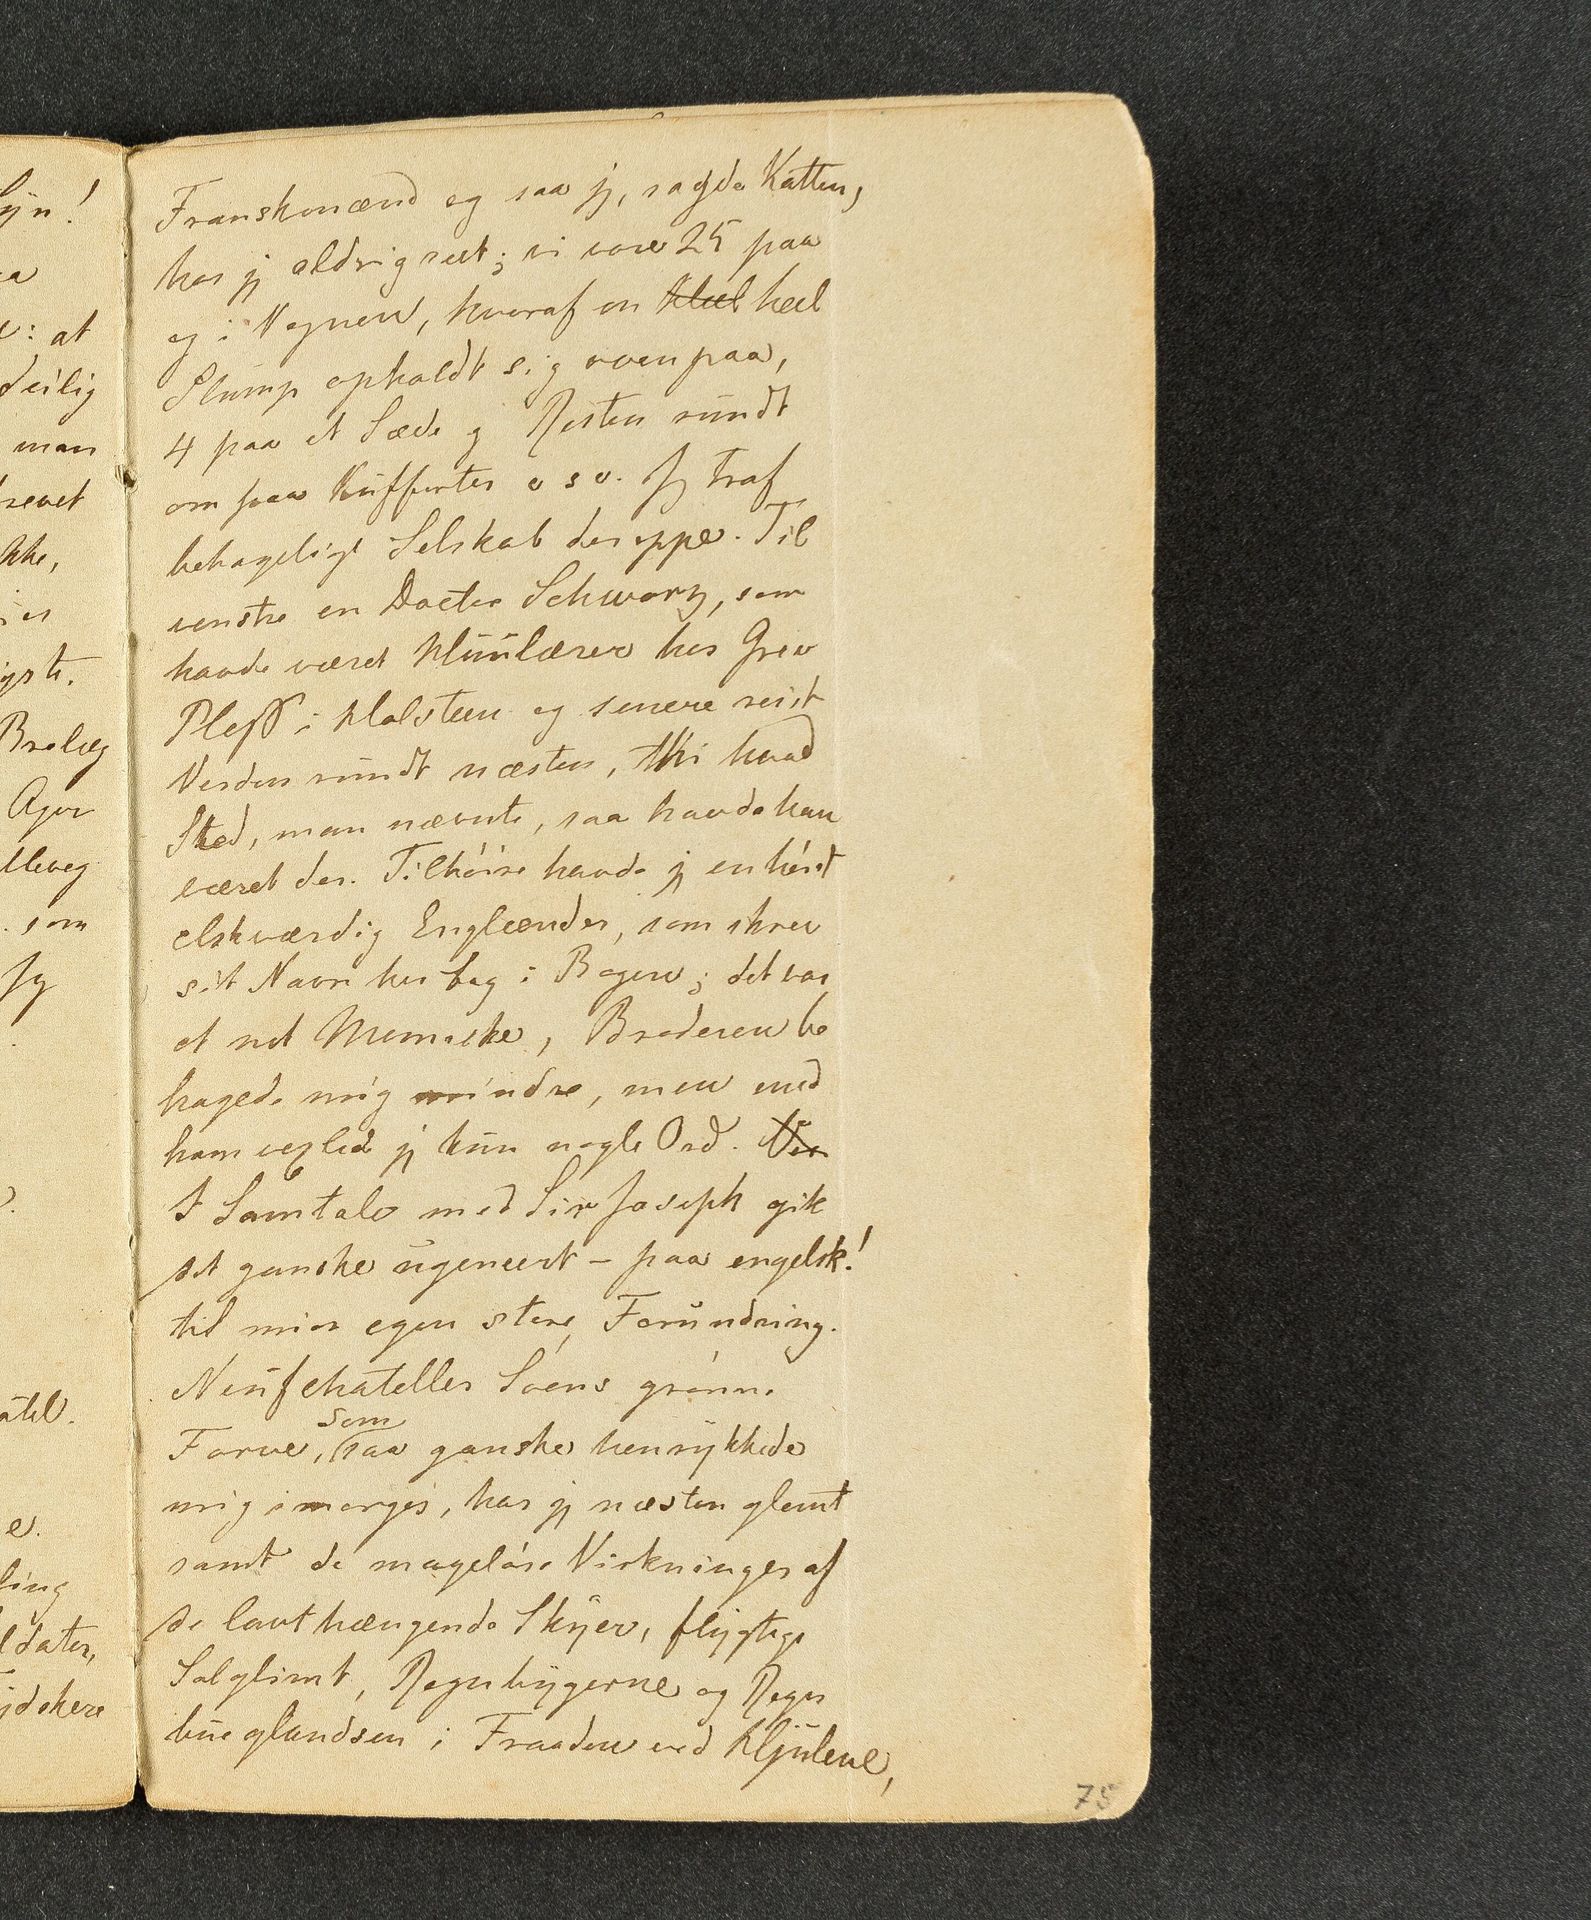 Sÿn!
a
: at
deilig
man
revet
kke,
Brolæg
Ager
som
Jg
ling
ldater,
ydskere
Franskmænd og saa jg, sagde Katten,
har jg aldrig seet; vi vare 25 paa
og i Vognen, hvoraf en Heel heel
Slump opholdt sig ovenpaa,
4 paa et Sæde og Resten rundt
om paa Kufferter o s v. Jg traf
behageligt Selskab deroppe. Til
venstre en Doctor Schwarz, som
havde været Huuslærer hos Grev
Pless i Holsteen og senere reist
Verden rundt næsten, thi hvad
Sted, man nævnte, saa havde han
været der. Tilhøire havde jg en høist
elskværdig Englænder, som skrev
sit Navn her bag i Bogen; det var
et net Menneske, Broderen be
hagede mig mindre, men med
ham vexled jg kun nogle Ord. Ver
I Samtale med Sir Joseph gik
det ganske ugeneert – paa engelsk!
til min egen store Forundring.
Neufchateller Søens grønne
Farve, som saa ganske henrykkede
mig imorges, har jg næsten glemt
samt de mageløse Virkninger af
de lavthængende Skÿer, flÿgtige
Solglimt, Regnbÿgerne og Regn
bueglandsen i Fraaden ved Hjulene,
75